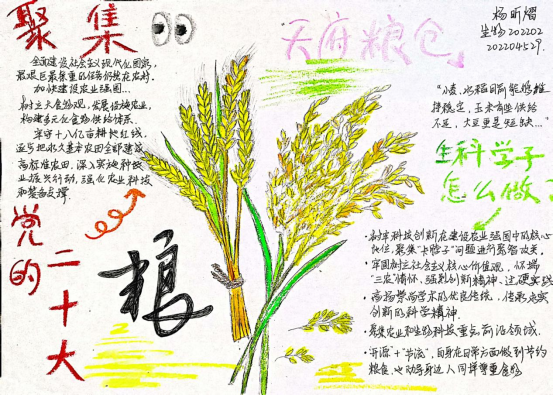 聚集
天府粮仓
杨昕熠
生物202202
202204529
全面建设社会主义现代化国家，
最艰巨最繁重的任务仍然在农村，
加快建设农业强国…
树立大食物观，发展设施农业，
构建多元化食物供给体系。
牢守十八亿亩耕地红线，
逐步把永久基本农田全部建成
高标准农田，深入实施种业
振兴行动，强化农业科技
和装备支撑
党的
二十大
粮
"小麦、水稻目前能够维
持稳定，玉米有些供给
不足，大豆更是短缺…"
生科学子
怎么做？
·树牢科技创新在建设农业强国中的核心
地位，聚焦"卡脖子"问题进行
·牢固树立社会主义核心价值观，怀揣
"三农"情怀，强创新精神、过硬实践
·高扬崇尚学术的优良传统，传承求实
创新的科学精神
·聚焦农业和生物科技重点前沿领域
·开源"+"节流"，自身在日常方面做到节约
粮食，也动员身边人同样尊重食物